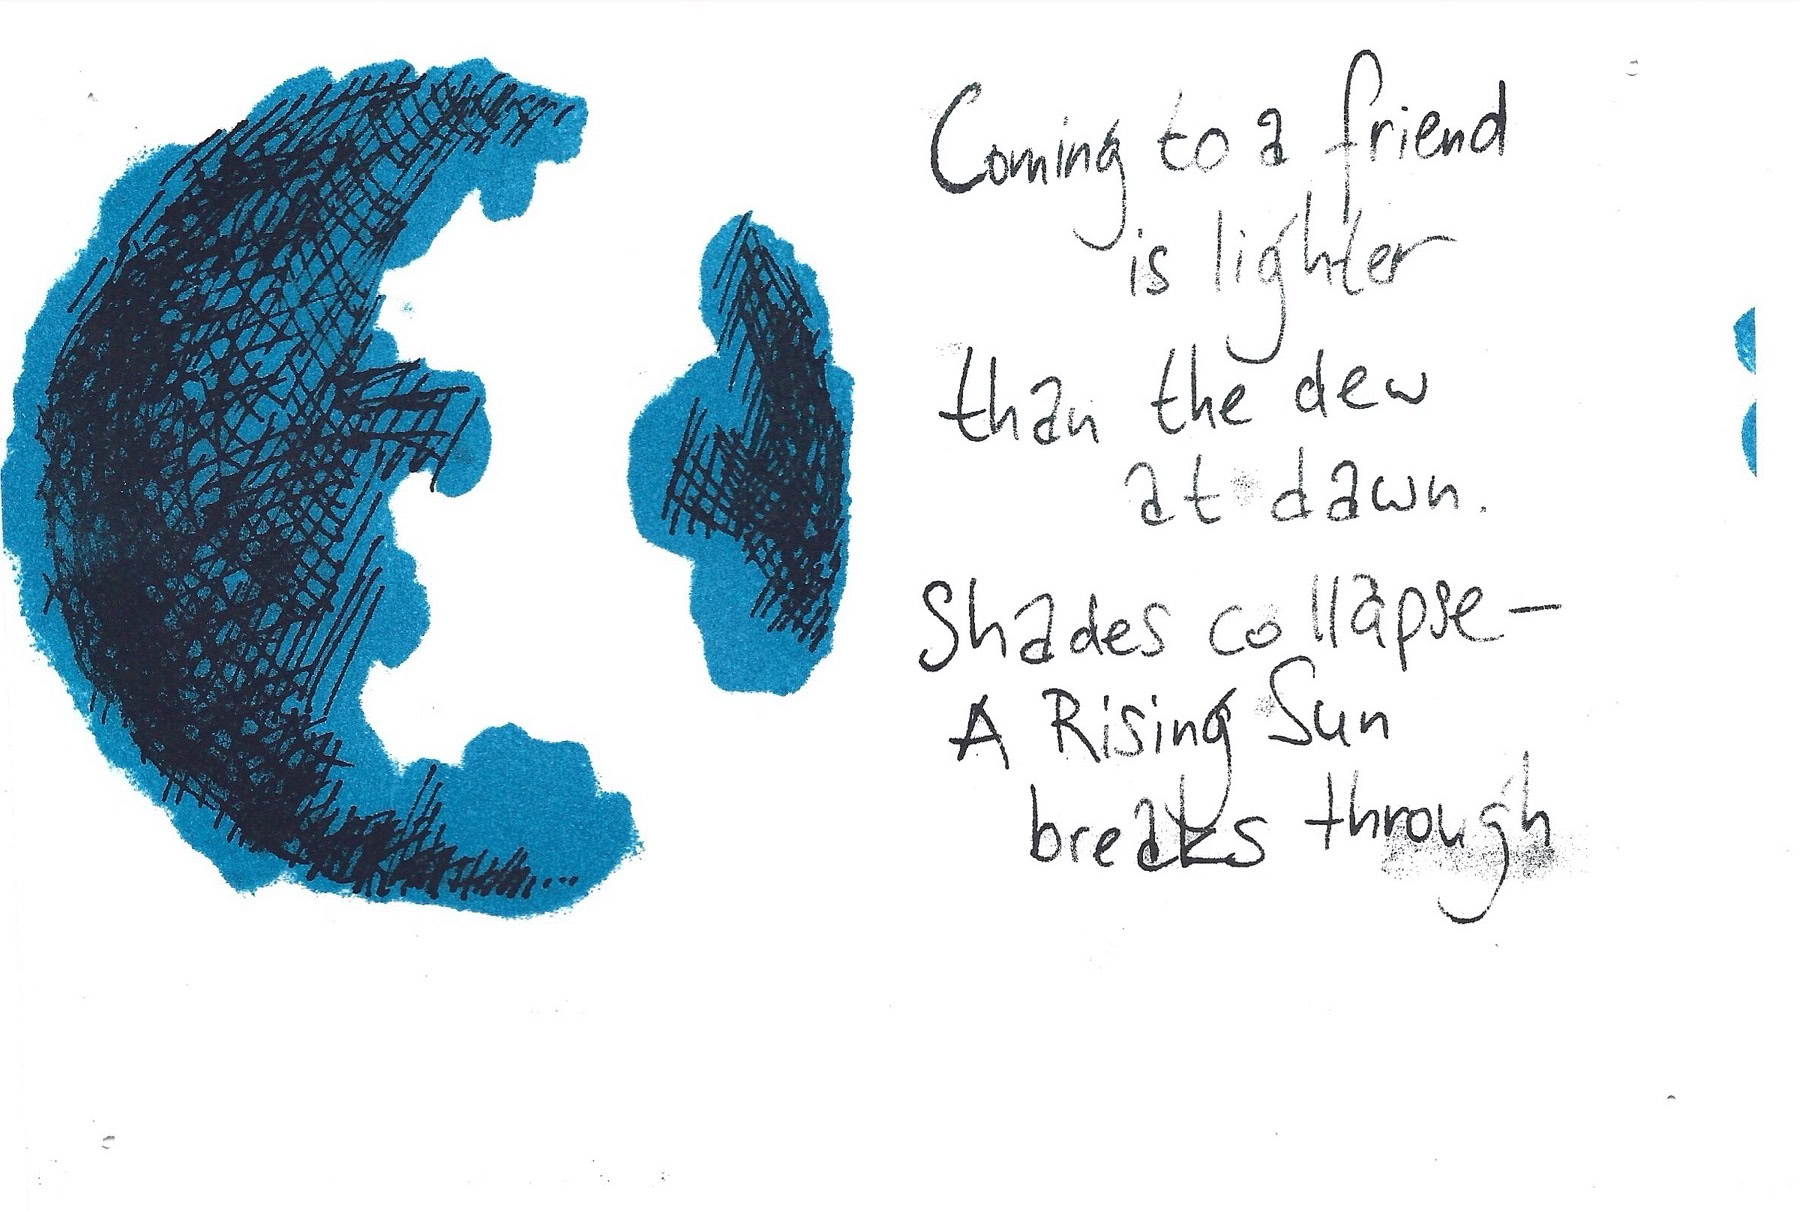 Coming to a friend
is lighter
than the dew
at dawn.
Shades collapse—
A Rising Sun
breaks through